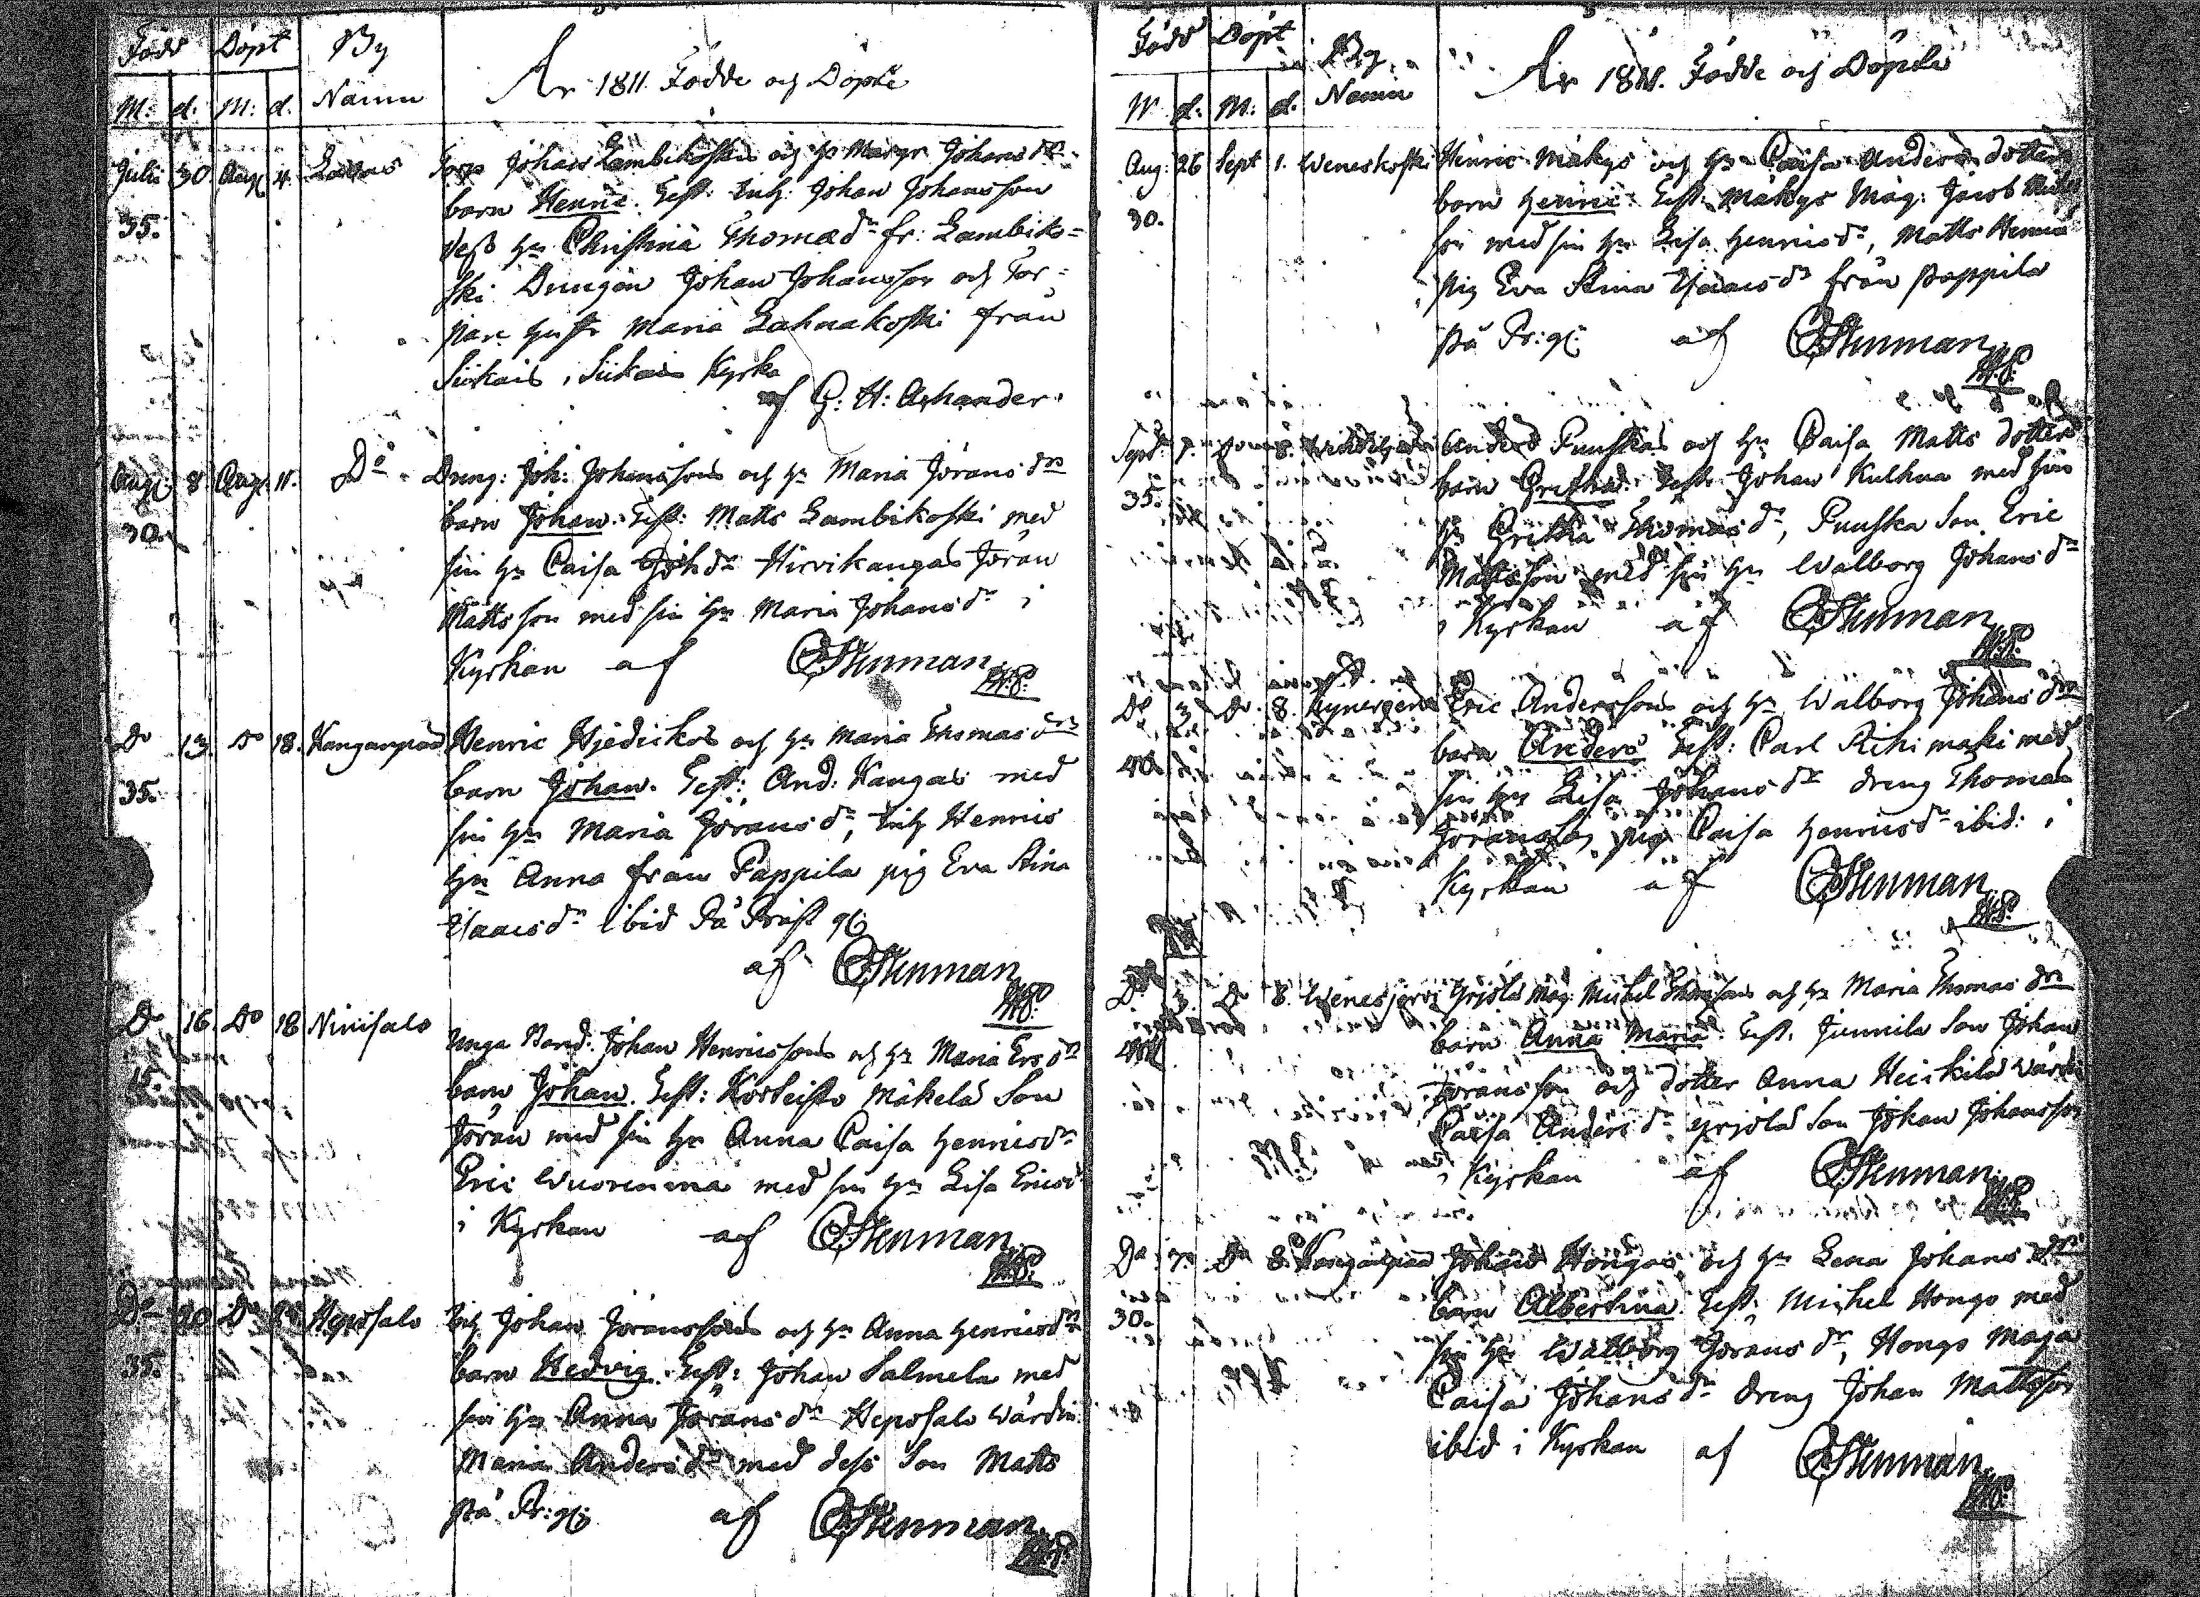 Född Döpt By
M: d. M: d. Namn
År 1811. Födde och Döpte
Julii 30 Aug. 4. Lassas Johans Lambikoskis och h. Margr. Johans dr
35. barn Henric. Test: Inh: Johan Johansson
dess hu Christina Thomæ dr fr: Lambiko=
ski Drengen Johan Johansson och Tor=
pare hust Maria Lahnakoski från
Siikais, i Siikais Kyrka
af G: H: Ashander.
Aug. 8. Aug. 11. Do Dreng: Joh: Johanssons och hu Maria Jörans drs
30. barn Johan. Test: Matts Lambikoski med
sin hu Caisa Joh dr Hirvikangas Jöran
Mattsson med sin hu Maria Johans dr i
Kyrkan af CStenman
Do 13. Do 18. Kanganpää Henric Hjedickos och hu Maria Thomas drs
35. barn Johan. Test: And: Kangas med
sin hu Maria Jörans dr, Inh Henrics
hu Anna från Pappila pig Eva Stina
Isaacs dr ibid På Präst g:
af CStenman
Do 16. Do 18 Niinisalo Unga Bond: Johan Henricssons och hu Maria Ers drs
15. barn Johan. Test: Korkeisto Mäkelä Son
Jöran med sin hu Anna Caisa Henrics dr
Eric Wuorenma med sin hu Lisa Erics dr
i Kyrkan af CStenman
Do 20 Do Heposalo Inh Johan Jöranssons och hu Anna Henrics drs
35. barn Hedvig. Test: Johan Salmela med
sin hu Anna Jörans dr Heposalo Wärdin:
Maria Anders dr med dess Son Matts
på Pr: g: af CStenman
Född Döpt By
M d. M: d. Namn
År 1811. Födde och Döpte
Aug: 26 Sept 1. Weneskoski Henric Mäkys och hu Caisa Anders dotters
30. barn Henric. Test: Mäkys Måg: Jacob
son med sin hu Lisa Henrics dr, Matts Henrics
pig Eva Stina Isaacs dr från Pappila
På Pr: g: af CStenman
Sept: 7. Do 8. Anders Puuskas och hu Caisa Matts dotters
35. barn Gretha. Test: Johan Kulhua med sin
hu Gretha Thomas dr, Puuska Son Eric
Mattsson med sin hu Walborg Johans dr
i Kyrkan af CStenman
Do 3. Do 8. Eric Anderssons och hu Walborg Johans drs
40. barn Anders. Test: Carl Rihimaki med
sin hu Lisa Johans dr dreng Thomas
Jöransson, pig Caisa Henrics dr ibid: i
Kyrkan af CStenman
Do 3. Do 8. Wenesjervi Yrjölä Måg Michel Thomssons och hu Maria Thomas drs
barn Anna Maria. Test. Junnila Son Johan
Jöransson och dotter Anna Heickilä Wärdin
Caisa Anders dr Yrjölä Son Johan Johansson
i Kyrkan af CStenman
Do 7. Do 8. Kanganpää Johan Hongos och hu Lena Johans drs
30. barn Albertina. Test: Michel Hongo med
sin hu Walborg Jörans dr, Hongo Måga
Caisa Johans dr dreng Johan Mattsson
ibid i Kyrkan af CStenman